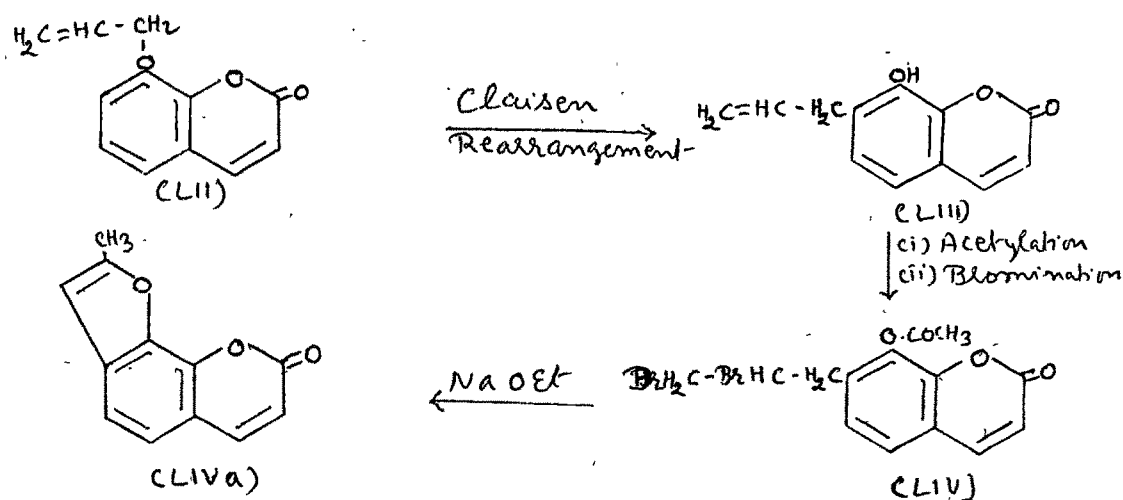 H2C=HC-CH2
O
O
O
(LII)
Claisen
Rearrangement
OH
H2C=HC-H2C
O
O
(LIII)
(i) Acetylation
(ii) Bromination
O.COCH3
BrH2C-BrHC-H2C
O
O
(LIV)
NaOEt
CH3
O
O
O
(LIVa)